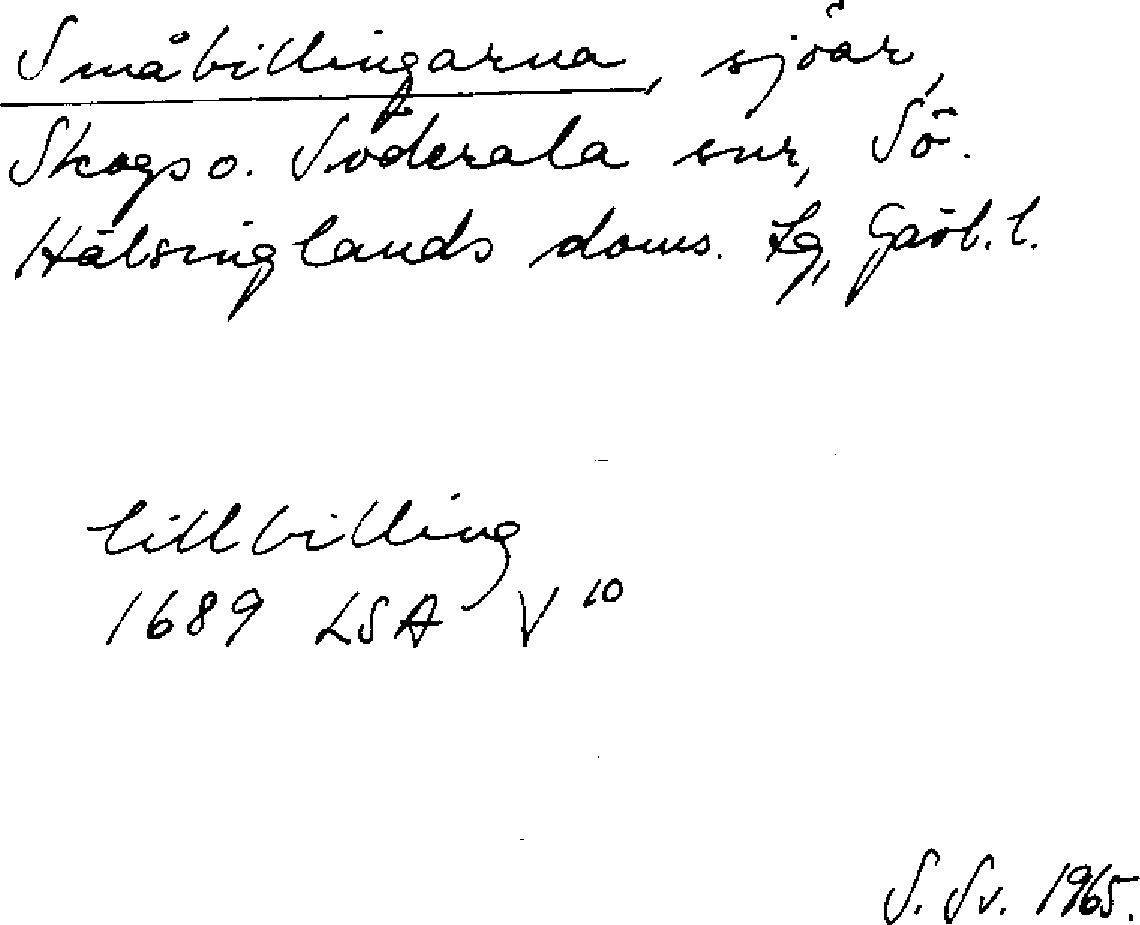 Småbillingarna, sjöar,
Skogs o. Söderala snr, Sö.
Hälsinglands doms. Lg, Gävl. l.
lillbilling
1689 LSA V¹⁰
S. Sv. 1965.